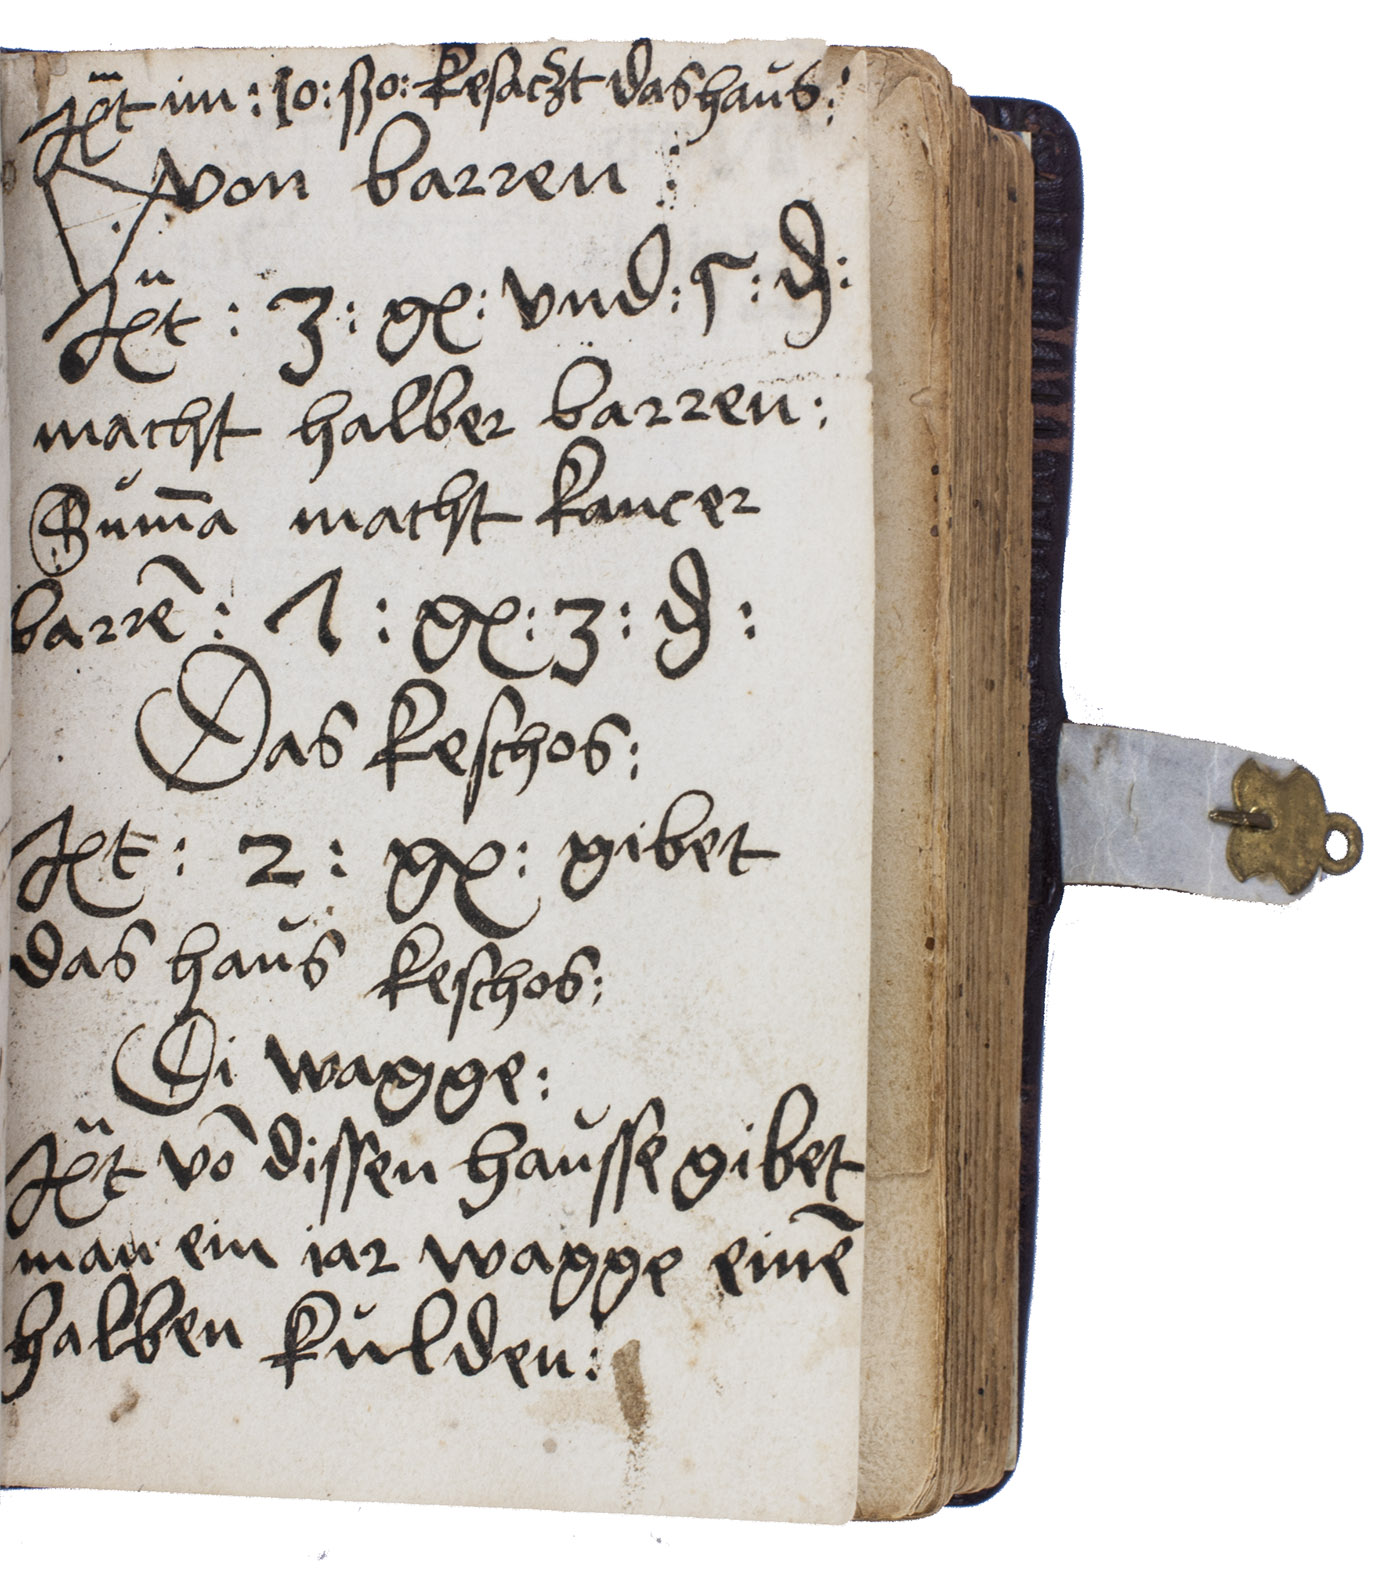 Itt im : 10 : ßo : kesaczt das haus :
von barren :
Itt : 3 : gx : vnd : 5 : d :
macht halber barren :
Summa macht kancer
barrē : 1 : gx : 3 : d :
Das keschos :
Itt : 2 : gx : gibet
das haus keschos :
Di wagge :
Itt vō dissen hausse gibet
man ein iar wagge einē
halben kulden :